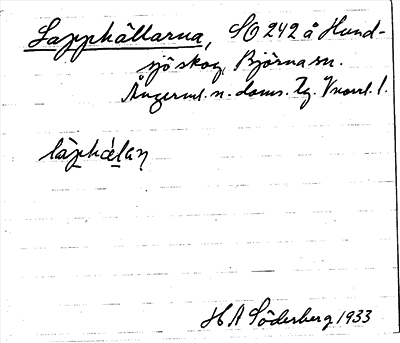 Lapphällarna, SO 242 å Hund-
sjö skog, Björna sn.
Ångerml. n. doms. Tg. Vnorrl. l.
läphälan
H A Söderberg 1933